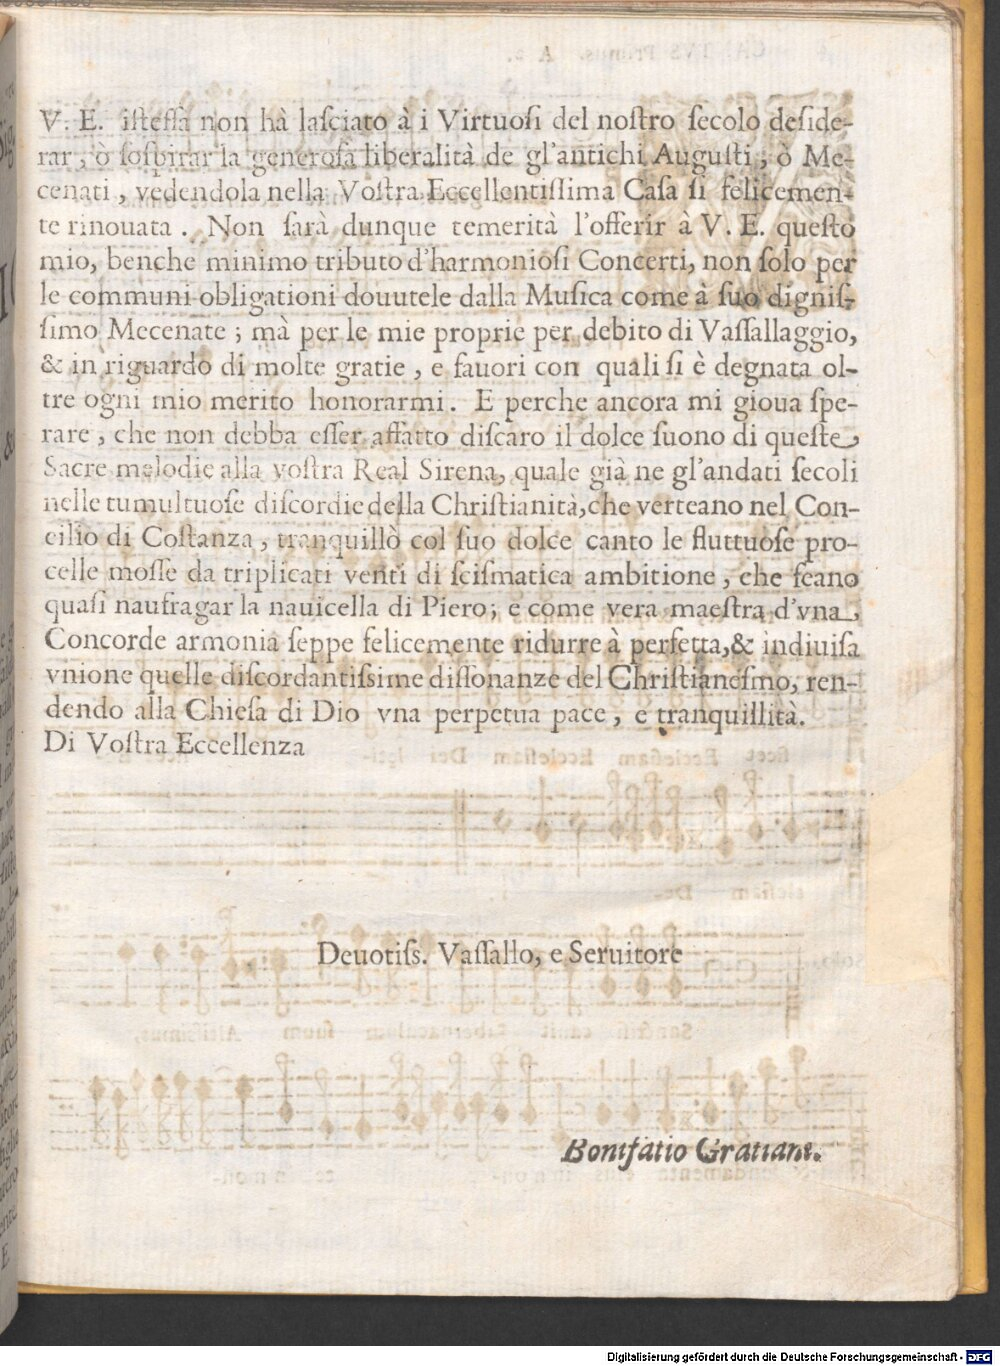 V. E. isteſsà non hà laſciato à i Virtuoſi del noſtro ſecolo deſide-
rar, ò ſoſpirar la generoſa liberalità de gl'antichi Auguſti; ò Me-
cenati, vedendola nella Voſtra Eccellentiſſima Caſa sì felicemen-
te rinouata. Non ſarà dunque temerità l'offerir à V. E. queſto
mio, benche minimo tributo d'harmonioſi Concerti, non ſolo per
le communi obligationi douutele dalla Muſica come à ſuo digniſ-
ſimo Mecenate; mà per le mie proprie per debito di Vaſſallaggio,
& in riguardo di molte gratie, e fauori con quali ſi è degnata ol-
tre ogni mio merito honorarmi. E perche ancora mi gioua ſpe-
rare, che non debba eſſer affatto diſcaro il dolce ſuono di queſte
Sacre melodie alla voſtra Real Sirena, quale già ne gl'andati ſecoli
nelle tumultuoſe diſcordie della Chriſtianità, che verteano nel Con-
cilio di Coſtanza, tranquillò col ſuo dolce canto le fluttuoſe pro-
celle moſſe da triplicati venti di ſciſmatica ambitione, che feano
quaſi naufragar la nauicella di Piero; e come vera maeſtra d'vna
Concorde armonia ſeppe felicemente ridurre à perfetta, & indiuiſa
vnione quelle diſcordantiſsime diſſonanze del Chriſtianeſmo, ren-
dendo alla Chieſa di Dio vna perpetua pace, e tranquillità.
Di Voſtra Eccellenza
Deuotiſs. Vaſſallo, e Seruitore
Bonifatio Gratiani.
Digitalisierung gefördert durch die Deutsche Forschungsgemeinschaft - DFG